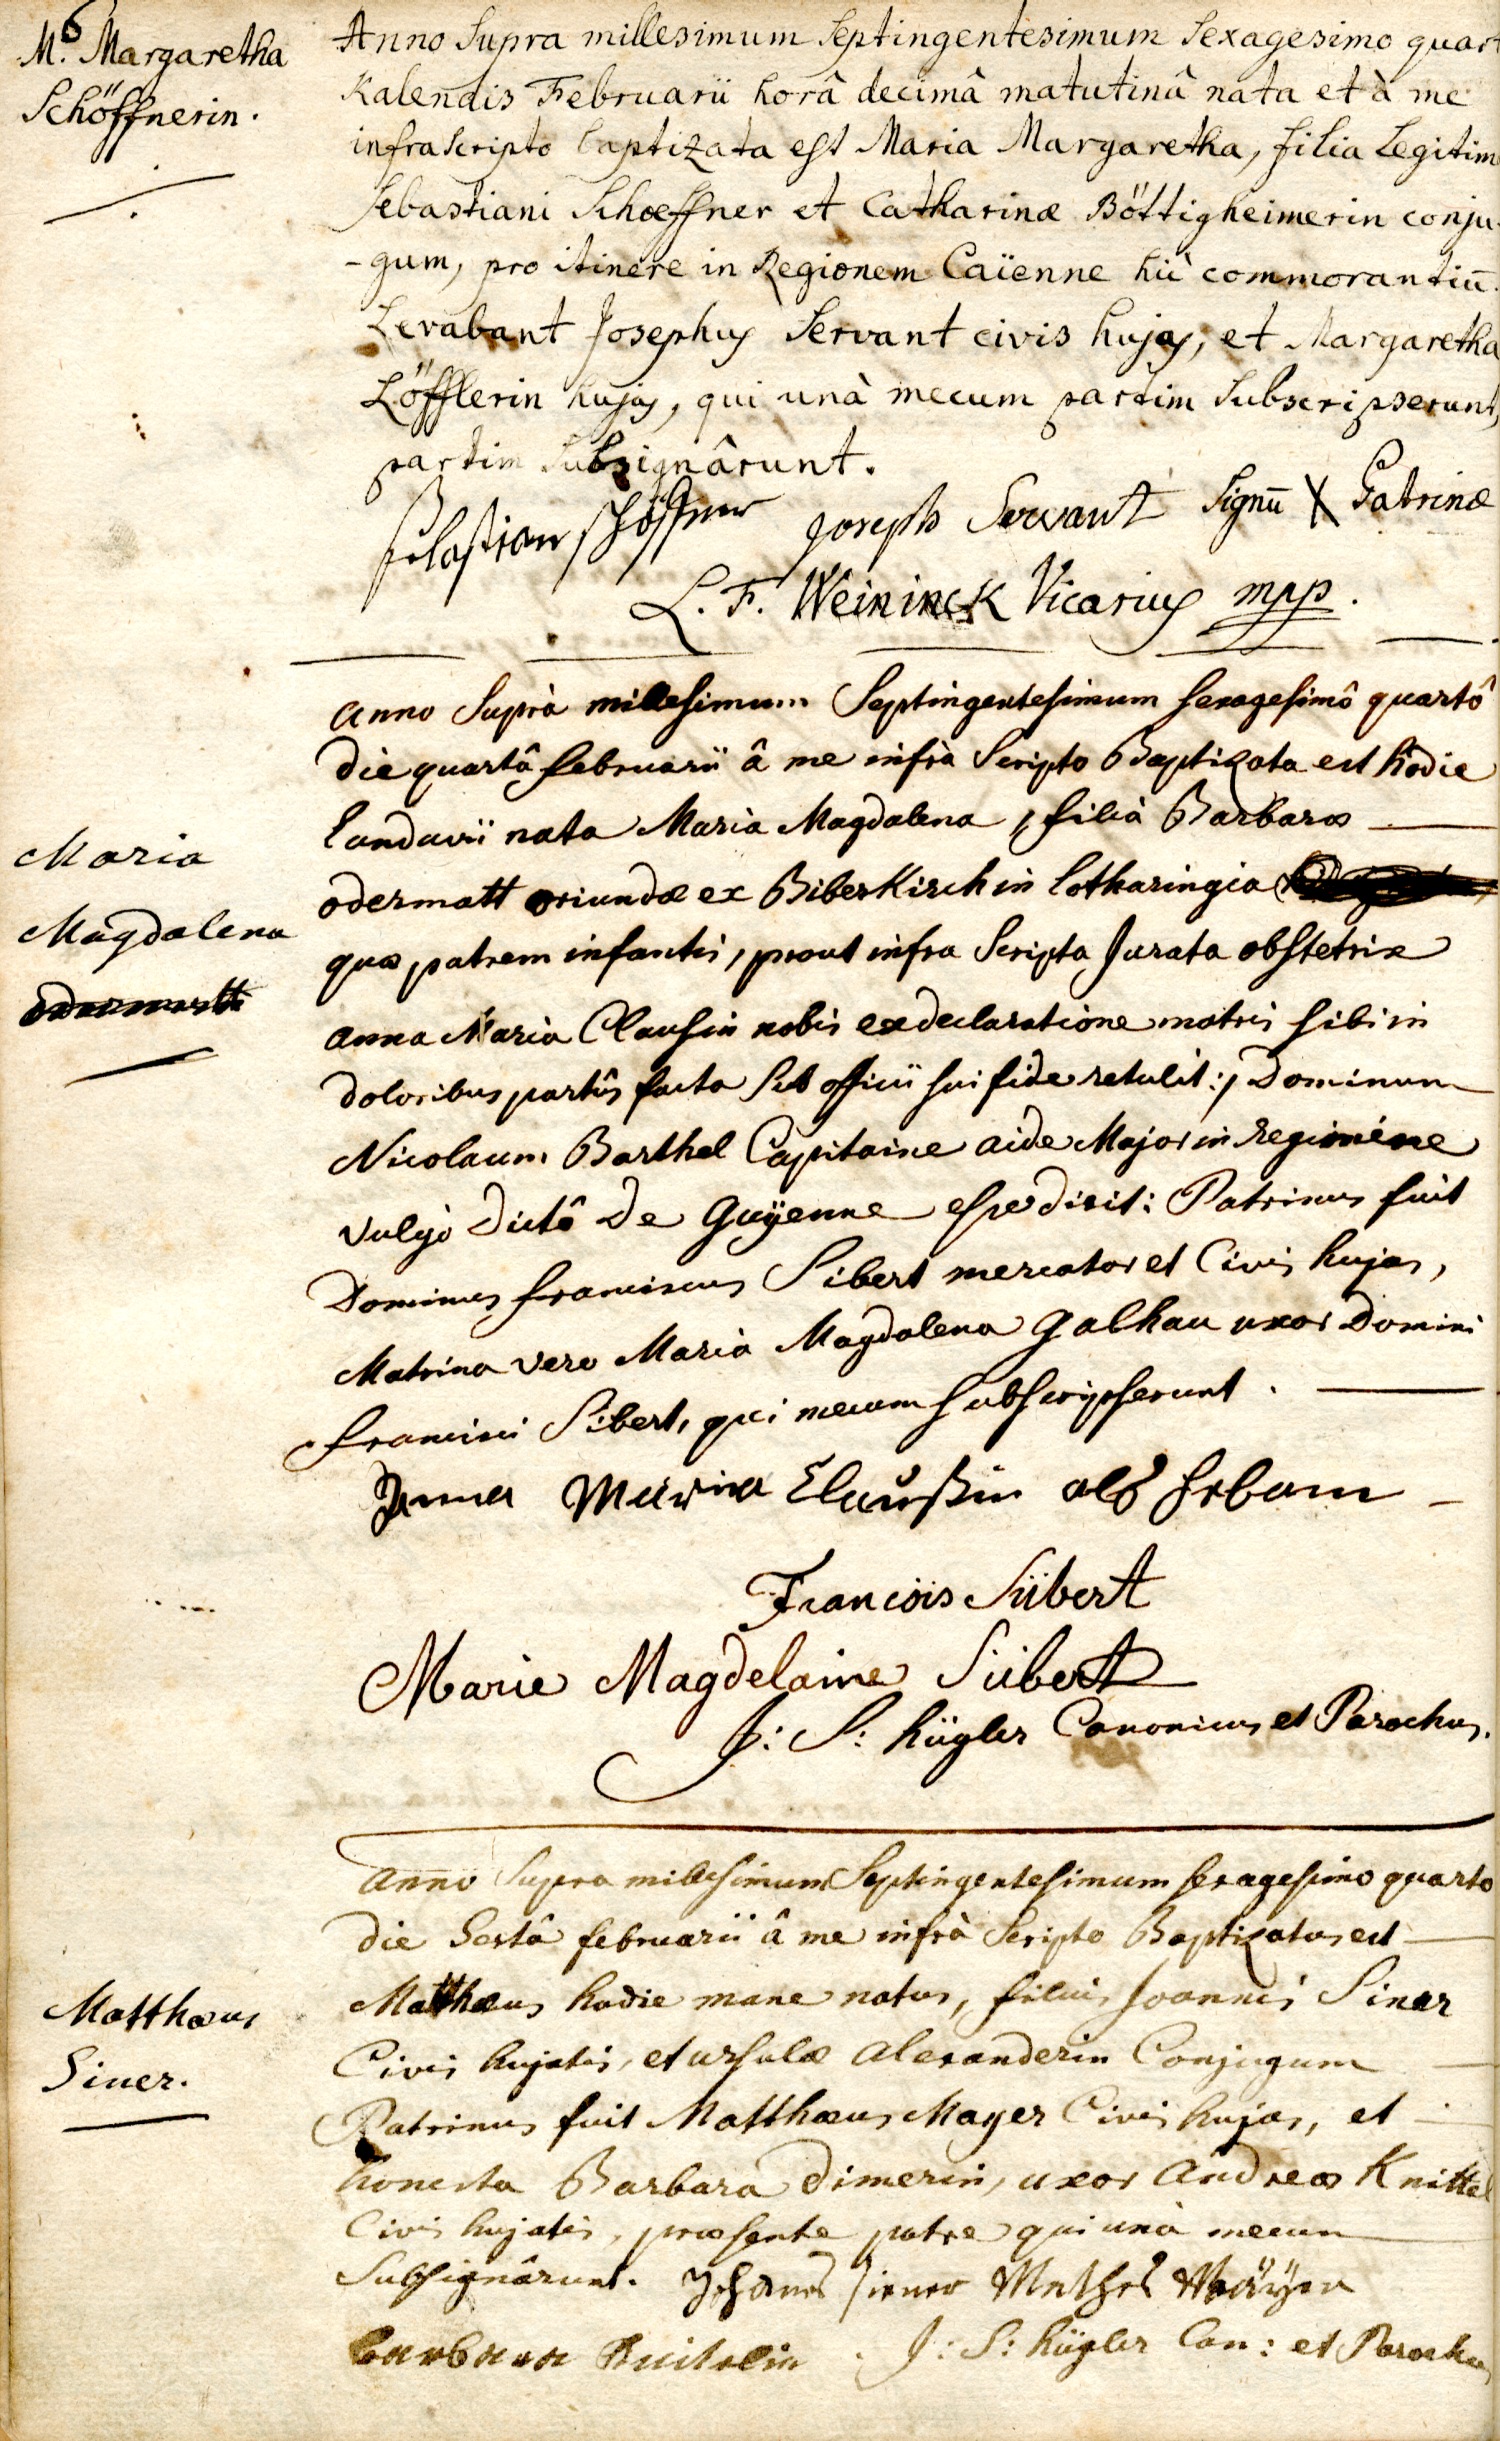 6
M. Margaretha
Schöffnerin.
Anno Supra millesimum Septingentesimum Sexagesimo quart
Kalendis Februarii horâ decimâ matutinâ nata et à me
infrascripto baptizata est Maria Margaretha, filia Legitim
Sebastiani Schoeffner et Catharinæ Böttigheimerin conju-
-gum, pro itinere in Regionem Caïenne hìc commorantiū.
Levabant Josephus Servant civis hujas, et Margaretha
Löfflerin hujas, qui unà mecum partim Subscripserunt,
partim Subsignârunt.
Sebastian Schöffner Joseph Servant Signū X Patrinæ
L. F. Weininck Vicarius mpp.
Maria
Magdalena
odermatt
Anno Suprà millesimum Septingentesimum sexagesimô quartô
die quartâ februarii â me infrà Scripto Baptizata est hodie
Landavii nata Maria Magdalena, filia Barbaræ
odermatt oriundæ ex Biberkirch in Lotharingia
quæ patrem infantis, prout infra Scripta Jurata obstetrix
anna Maria Clausin nobis ex declaratione matris sibi in
doloribus partûs facta Sub officii sui fide retulit:, Dominum
Nicolaum Barthel Capitaine aide Major in regimine
vulgò dictô de Guÿenne esse dixit: Patrinus fuit
Dominus franciscus Sibert mercator et Civis hujas,
Matrina vero Maria Magdalena Galhau uxor Domini
francisci Sibert, qui mecum subscripserunt.
Anna Maria Claußin als hebam
François Siibert
Marie Magdelaine Siibert
J: S: hügler Canonicus et Parochus.
Matthæus
Siner.
Anno Supra millesimum Septingentesimum sexagesimo quarto
die Sextâ februarii â me infrà Scripto Baptizatus est
Matthæus hodie mane natus, filius Joannis Siner
Civis hujatis, et ursulæ alexanderin Conjugum
Patrinus fuit Matthæus Mayer Civis hujas, et
honesta Barbara Dimerin, uxor Andreæ Knittel
Civis hujatis, præsente patre qui unà mecum
Subsignârunt. Johanes Siener Mathes Maÿer
barbara Knitelin. J: S: hügler Can: et Parochus